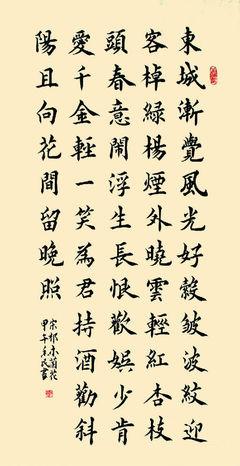 東城漸覺風光好縠皺波紋迎
客棹綠楊煙外曉雲輕紅杏枝
頭春意鬧浮生長恨歡娛少肯
愛千金輕一笑為君持酒勸斜
陽且向花間留晚照
宋祁木蘭花
甲午